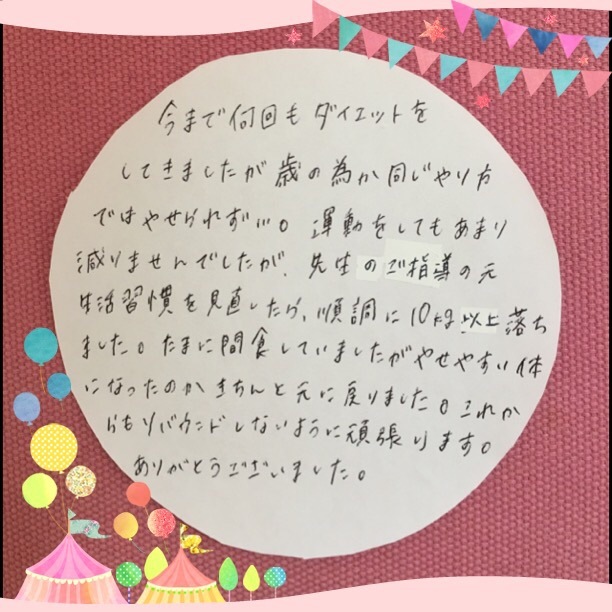 今まで何回もダイエットを
してきましたが歳の為か同じやり方
ではやせられず…。運動をしてもあまり
減りませんでしたが、先生のご指導の元
生活習慣を見直したら、順調に10kg以上落ち
ました。たまに間食していましたがやせやすい体
になったのかきちんと元に戻りました。これか
らもリバウンドしないように頑張ります。
ありがとうございました。